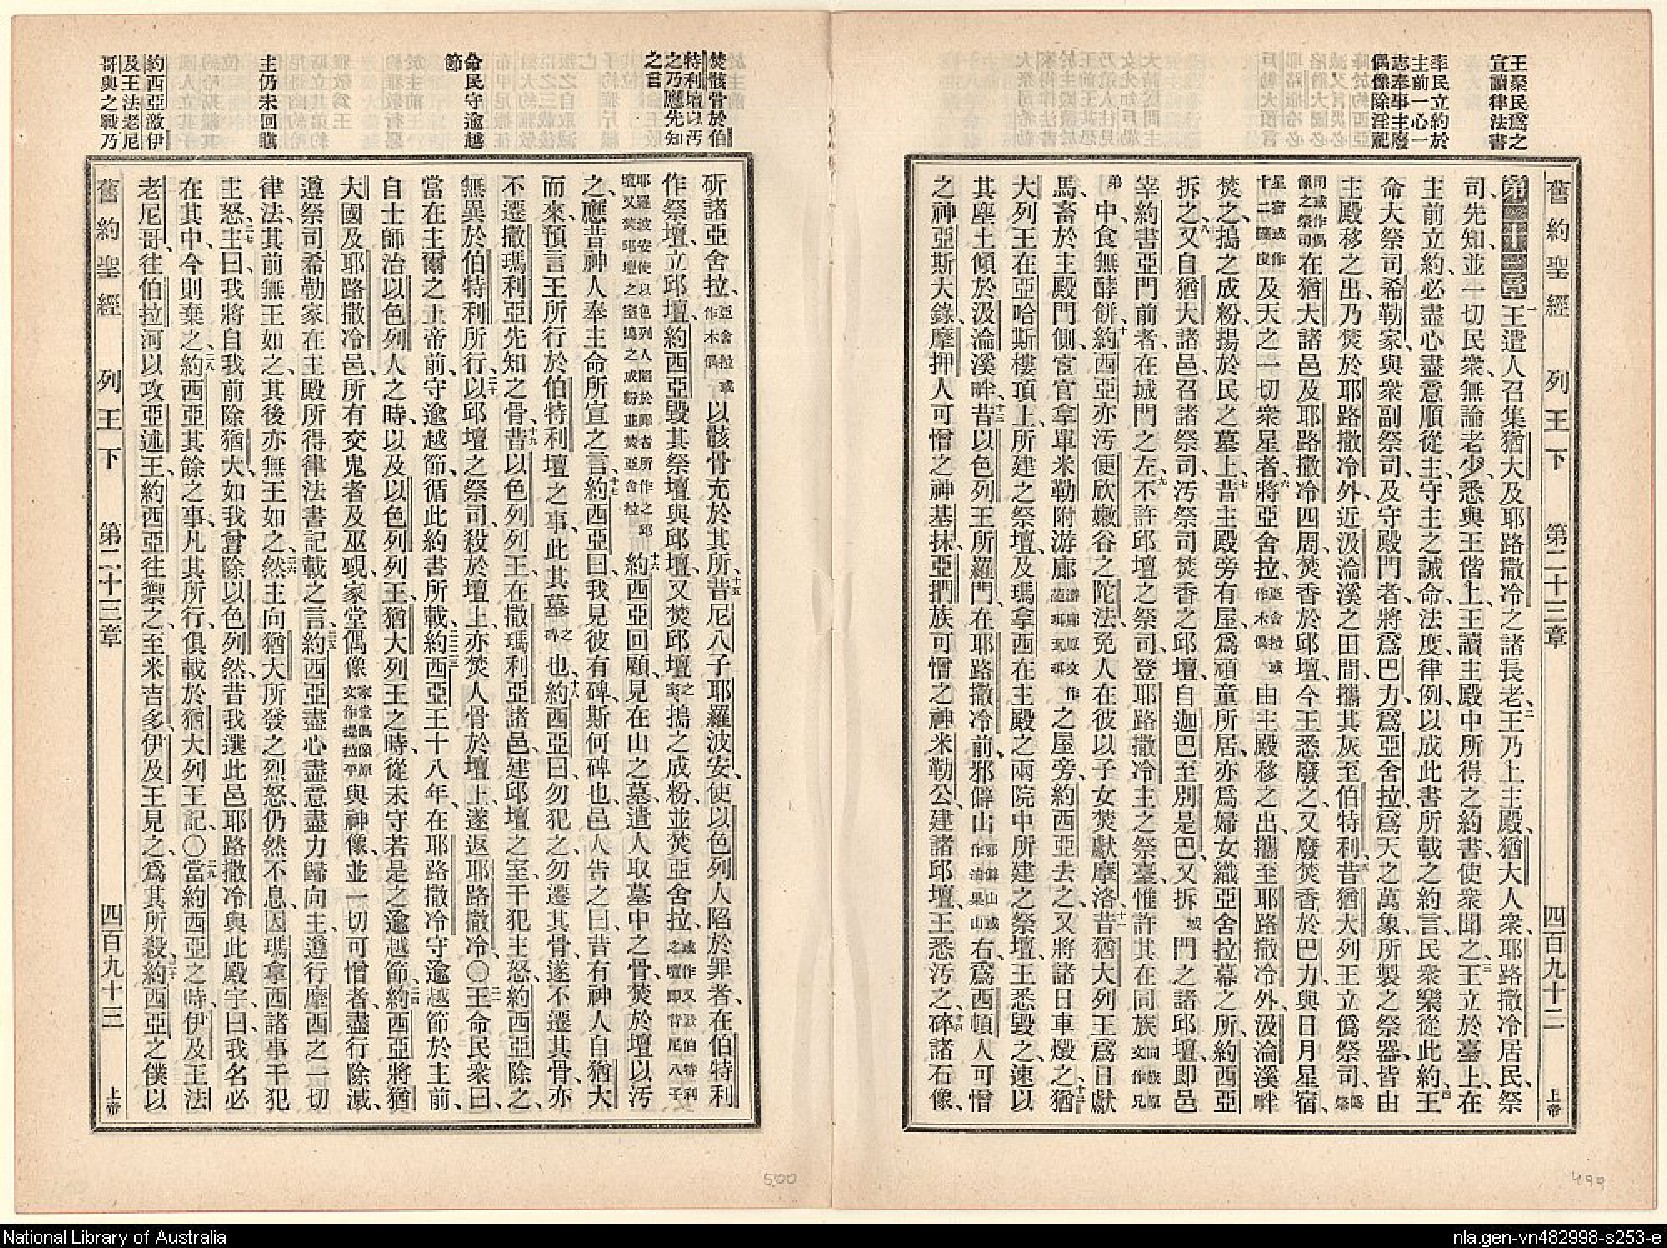 王聚民為之
宣讀律法書
率民立約於
主前一心一
志奉事主廢
偶像除淫祀
舊約聖經 列王下 第二十三章 四百九十二 上帝
第二十三章 一王遣人召集猶大及耶路撒冷之諸長老、二王乃上主殿、猶大人衆、耶路撒冷居民、祭
司、先知、並一切民衆、無論老少、悉與王偕上、王讀主殿中所得之約書、使衆聞之、三王立於臺上、在
主前立約、必盡心盡意順從主、守主之誡命法度律例、以成此書所載之約言、民衆樂從此約、四王
命大祭司希勒家、與衆副祭司、及守殿門者、將為巴力、為亞舍拉、為天之萬象、所製之祭器、皆由
主殿移之出、乃焚於耶路撒冷外、近汲淪溪之田間、攜其灰至伯特利、五昔猶大列王立偽祭司、偽祭
司或作偶像之祭司在猶大諸邑及耶路撒冷四周、焚香於邱壇、今王悉廢之、又廢焚香於巴力、與日月星宿
星宿或作十二躔度及天之一切衆星者、六將亞舍拉、亞舍拉或作木偶由主殿移之出、攜至耶路撒冷外、汲淪溪畔
焚之、搗之成粉、揚於民之墓上、七昔主殿旁有屋、為頑童所居、亦為婦女織亞舍拉幕之所、約西亞
拆之、八又自猶大諸邑召諸祭司、汚祭司焚香之邱壇、自迦巴至別是巴、又拆城門之諸邱壇、即邑
宰約書亞門前者、在城門之左、九不許邱壇之祭司、登耶路撒冷主之祭臺、惟許其在同族同族原文作兄
弟中、食無酵餅、十約西亞亦汚便欣嫩谷之陀法、免人在彼以子女焚獻摩洛、十一昔猶大列王為日獻
馬、畜於主殿門側、宦官拿單米勒附游廊游廊原文作巴珥瓦珥之屋旁、約西亞去之、又將諸日車燬之、十二猶
大列王在亞哈斯樓頂上、所建之祭壇、及瑪拿西在主殿之兩院中所建之祭壇、王悉毀之、速以
其塵土傾於汲淪溪畔、十三昔以色列王所羅門、在耶路撒冷前、邪僻山邪僻山或作淸果山右、為西頓人可憎
之神亞斯大錄、摩押人可憎之神基抹、亞捫族可憎之神米勒公、建諸邱壇、王悉汚之、十四碎諸石像、
焚骸骨於伯
特利壇以汚
之乃應先知
之言
命民守逾越
節
主仍未回瞋
約西亞激伊
及王法老尼
哥與之戰乃
斫諸亞舍拉、亞舍拉或作木偶以骸骨充於其所、十五昔尼八子耶羅波安、使以色列人陷於罪者、在伯特利
作祭壇、立邱壇、約西亞毀其祭壇與邱壇、又焚邱壇之室搗之成粉、並焚亞舍拉、
耶羅波安使以色列人陷於罪者所作之邱壇又焚邱壇之室搗之成粉並焚亞舍拉十六約西亞回顧、見在山之墓、遣人取墓中之骨、焚於壇以汚
之、應昔神人奉主命所宣之言、十七約西亞曰、我見彼有碑、斯何碑也、邑人告之曰、昔有神人自猶大
而來、預言王所行於伯特利壇之事、此其墓之碑也、十八約西亞曰、勿犯之、勿遷其骨、遂不遷其骨、亦
不遷撒瑪利亞先知之骨、十九昔以色列列王在撒瑪利亞諸邑、建邱壇之室、干犯主怒、約西亞除之、
無異於伯特利所行、二十以邱壇之祭司、殺於壇上、亦焚人骨於壇上、遂返耶路撒冷、〇二一王命民衆曰、
當在主爾之上帝前、守逾越節、循此約書所載、二三約西亞王十八年、在耶路撒冷守逾越節於主前、
二二自士師治以色列人之時、以及以色列列王、猶大列王之時、從未守若是之逾越節、二四約西亞將猶
大國及耶路撒冷邑、所有交鬼者及巫覡、家堂偶像家堂偶像原文作提拉平與神像、並一切可憎者、盡行除滅、
遵祭司希勒家在主殿所得律法書記載之言、二五約西亞盡心盡意盡力歸向主、遵行摩西之一切
律法、其前無王如之、其後亦無王如之、二六然主向猶大所發之烈怒、仍然不息、因瑪拿西諸事干犯
主怒、二七主曰、我將自我前除猶大、如我曾除以色列然、昔我選此邑耶路撒冷與此殿宇、曰我名必
在其中、今則棄之、二八約西亞其餘之事、凡其所行、俱載於猶大列王記、〇二九當約西亞之時、伊及王法
老尼哥、往伯拉河以攻亞述王、約西亞往禦之、至米吉多、伊及王見之、為其所殺、三十約西亞之僕以
舊約聖經 列王下 第二十三章 四百九十三 上帝
500
499
National Library of Australia
nla.gen-vn482998-s253-e